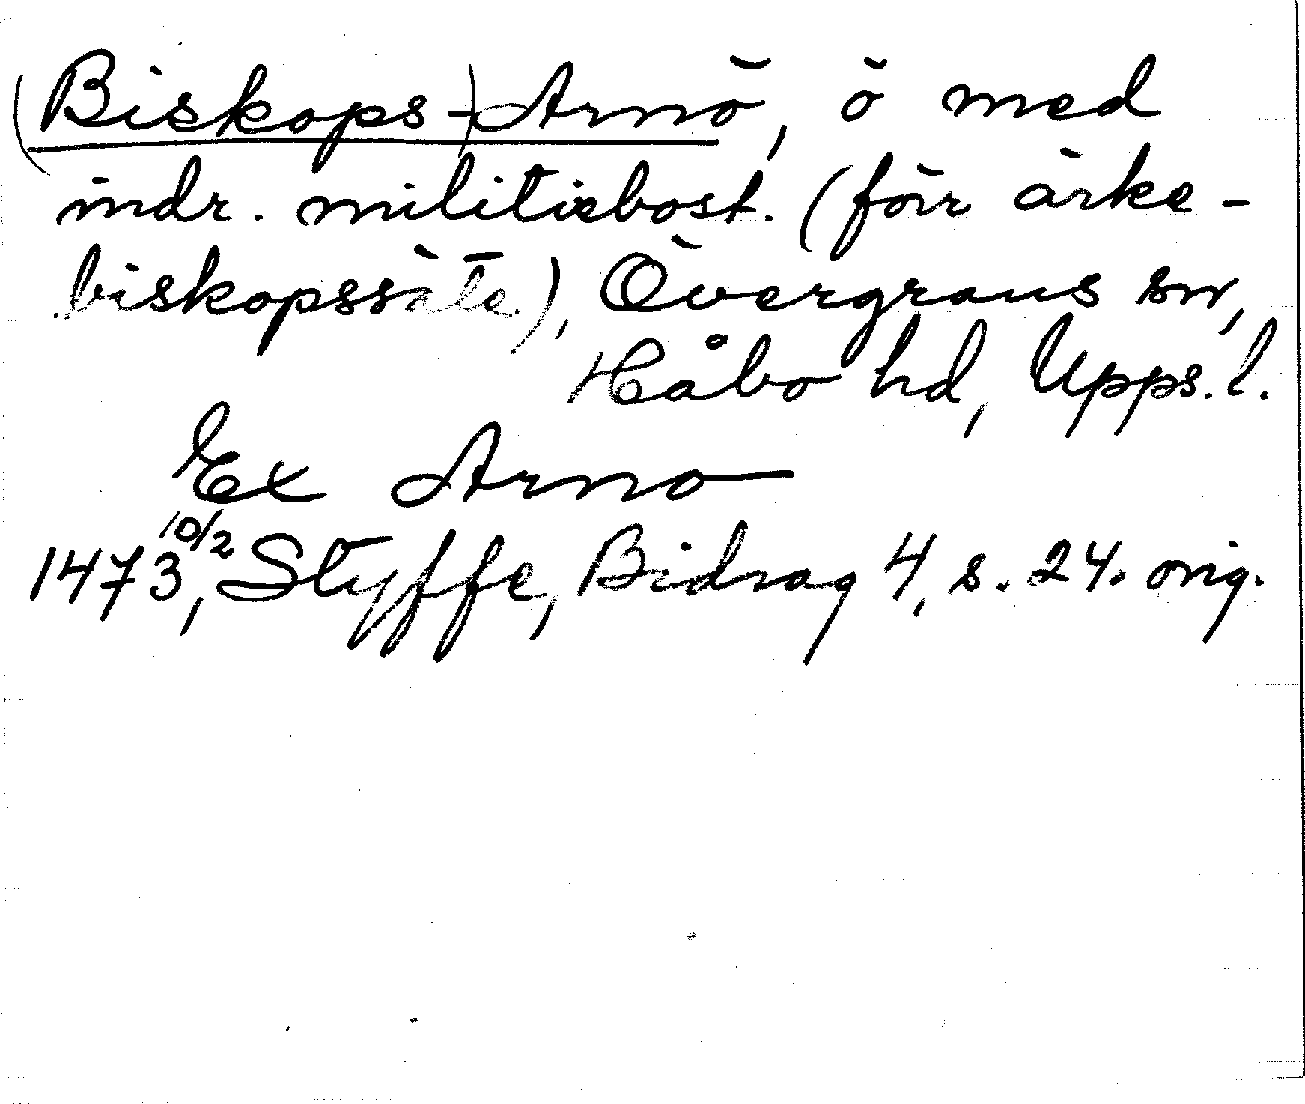 (Biskops-)Arnö, ö med
indr. militiebost. (förr ärke-
biskopssäte), Övergrans sn,
Håbo hd, Upps. l.
Ex Arno
1473 10/2, Styffe, Bidrag 4, s. 24. orig.